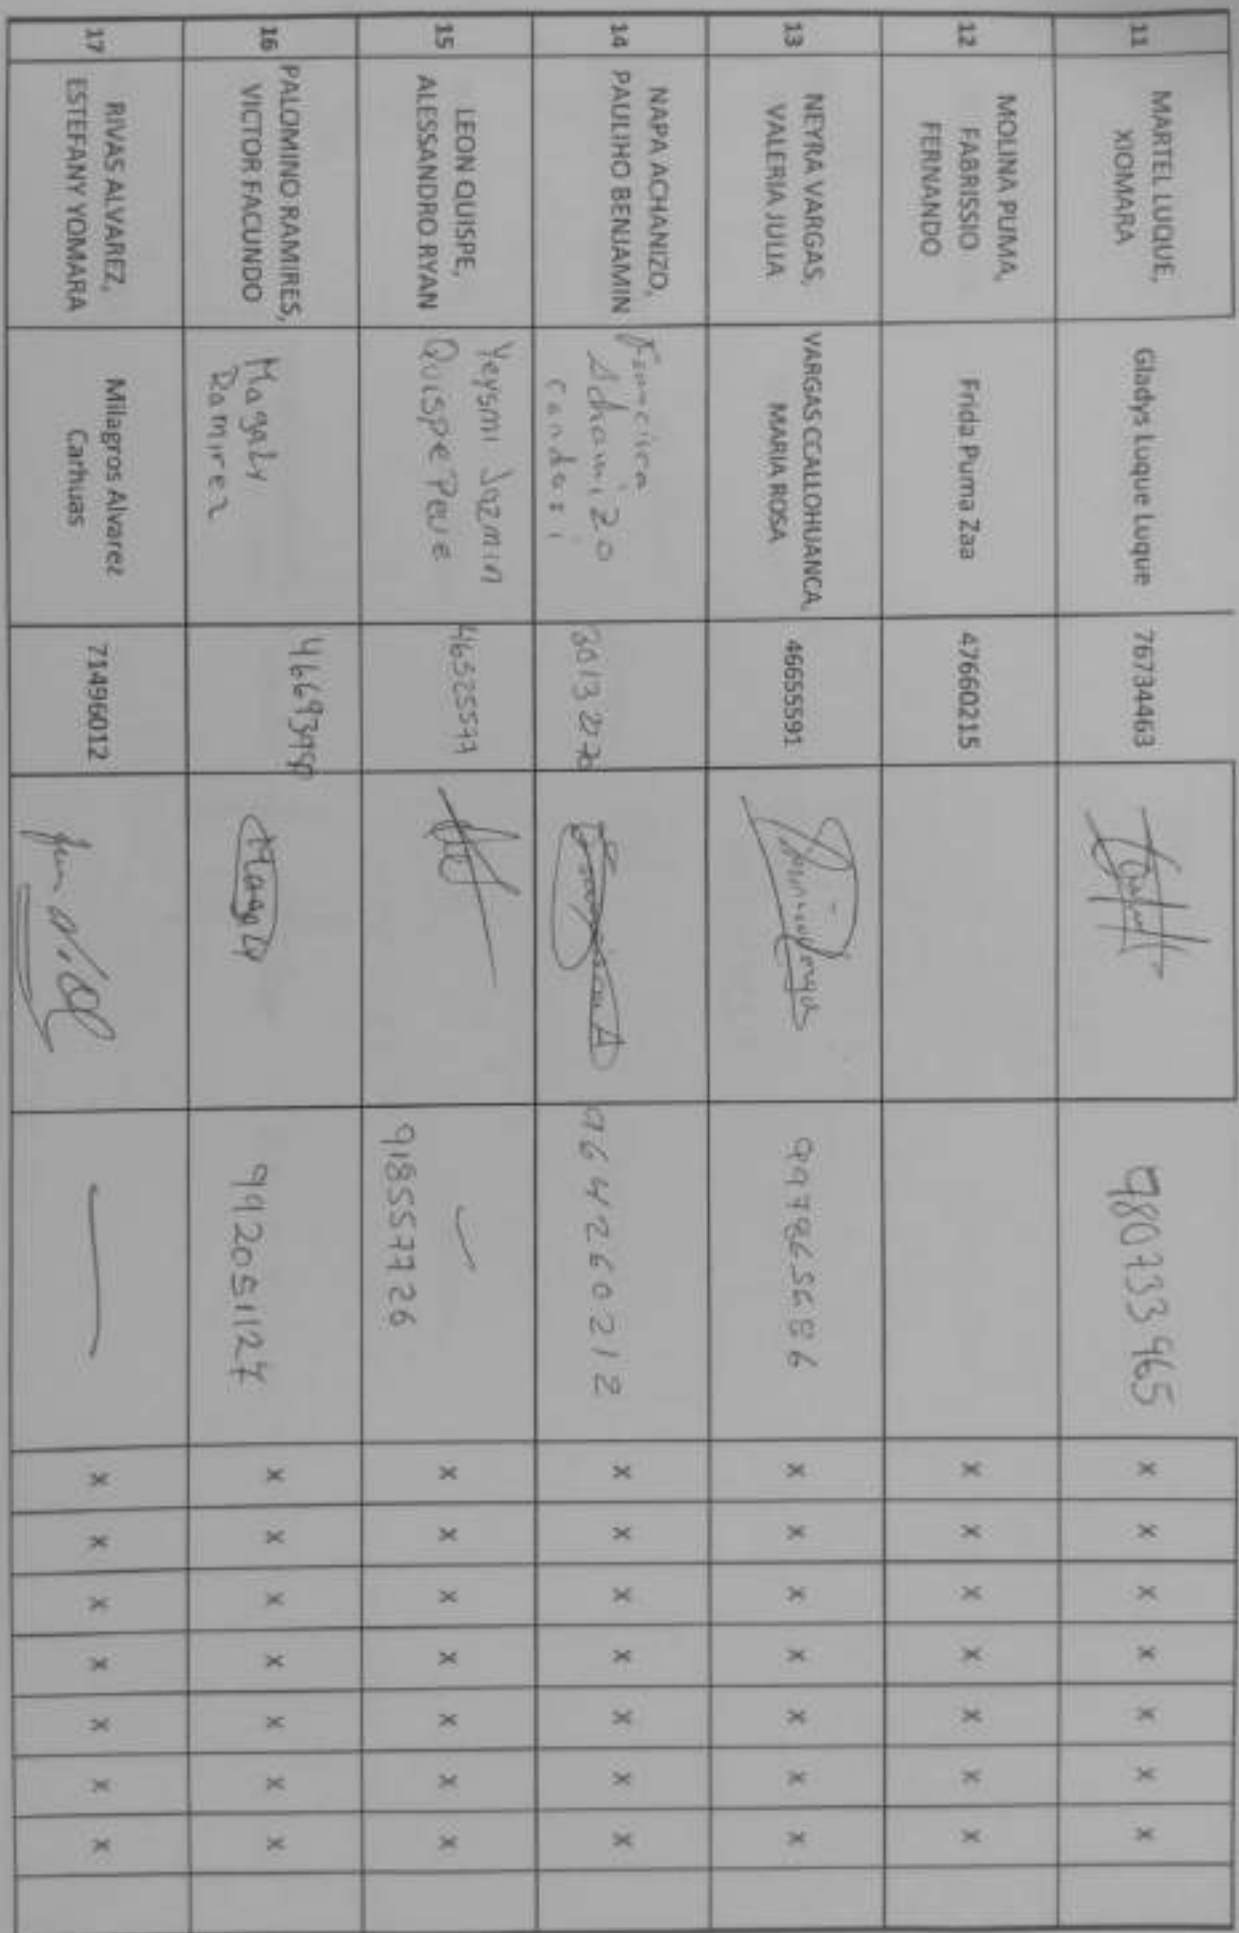 11
MARTEL LUQUE,
XIOMARA
Gladys Luque Luque
76734463
980733965
x x x x x x x
12
MOLINA PUMA,
FABRISSIO
FERNANDO
Frida Puma Zaa
47660215
x x x x x x x
13
NEYRA VARGAS,
VALERIA JULIA
VARGAS CCALLOHUANCA,
MARIA ROSA
46655591
x x x x x x x
14
NAPA ACHANIZO,
PAULIHO BENJAMIN
Francisca
Achanizo
Condori
964260212
x x x x x x x
15
LEON QUISPE,
ALESSANDRO RYAN
Yeysmi Jazmin
Quispe Peve
46525577
918557726
x x x x x x x
16
PALOMINO RAMIRES,
VICTOR FACUNDO
Magaly
Ramirez
Magaly
992051127
x x x x x x x
17
RIVAS ALVAREZ,
ESTEFANY YOMARA
Milagros Alvarez
Carhuas
71496012
x x x x x x x